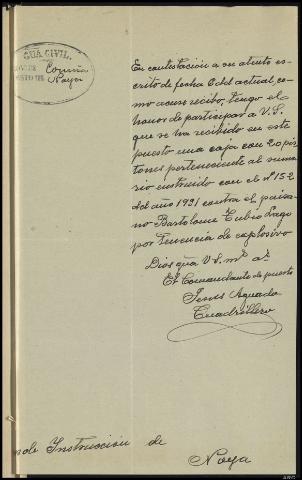 GUA. CIVIL.
Coruña
Noya
En contestación a su atento es-
crito de fecha 6 del actual, co-
mo acuse recibo, tengo el
honor de participar a V.S.
que se ha recibido en este
puesto una caja con 20 pis-
tones perteneciente al suma-
rio instruido con el nº 152
del año 1921 contra el paisa-
no Bartolome Tubio Lago
por tenencia de explosivo
Dios gūa V.S. mˢ aˢ
El Comandante de puesto
Jesus Aguado
Cuadrillero
de Instrucción de
Noya